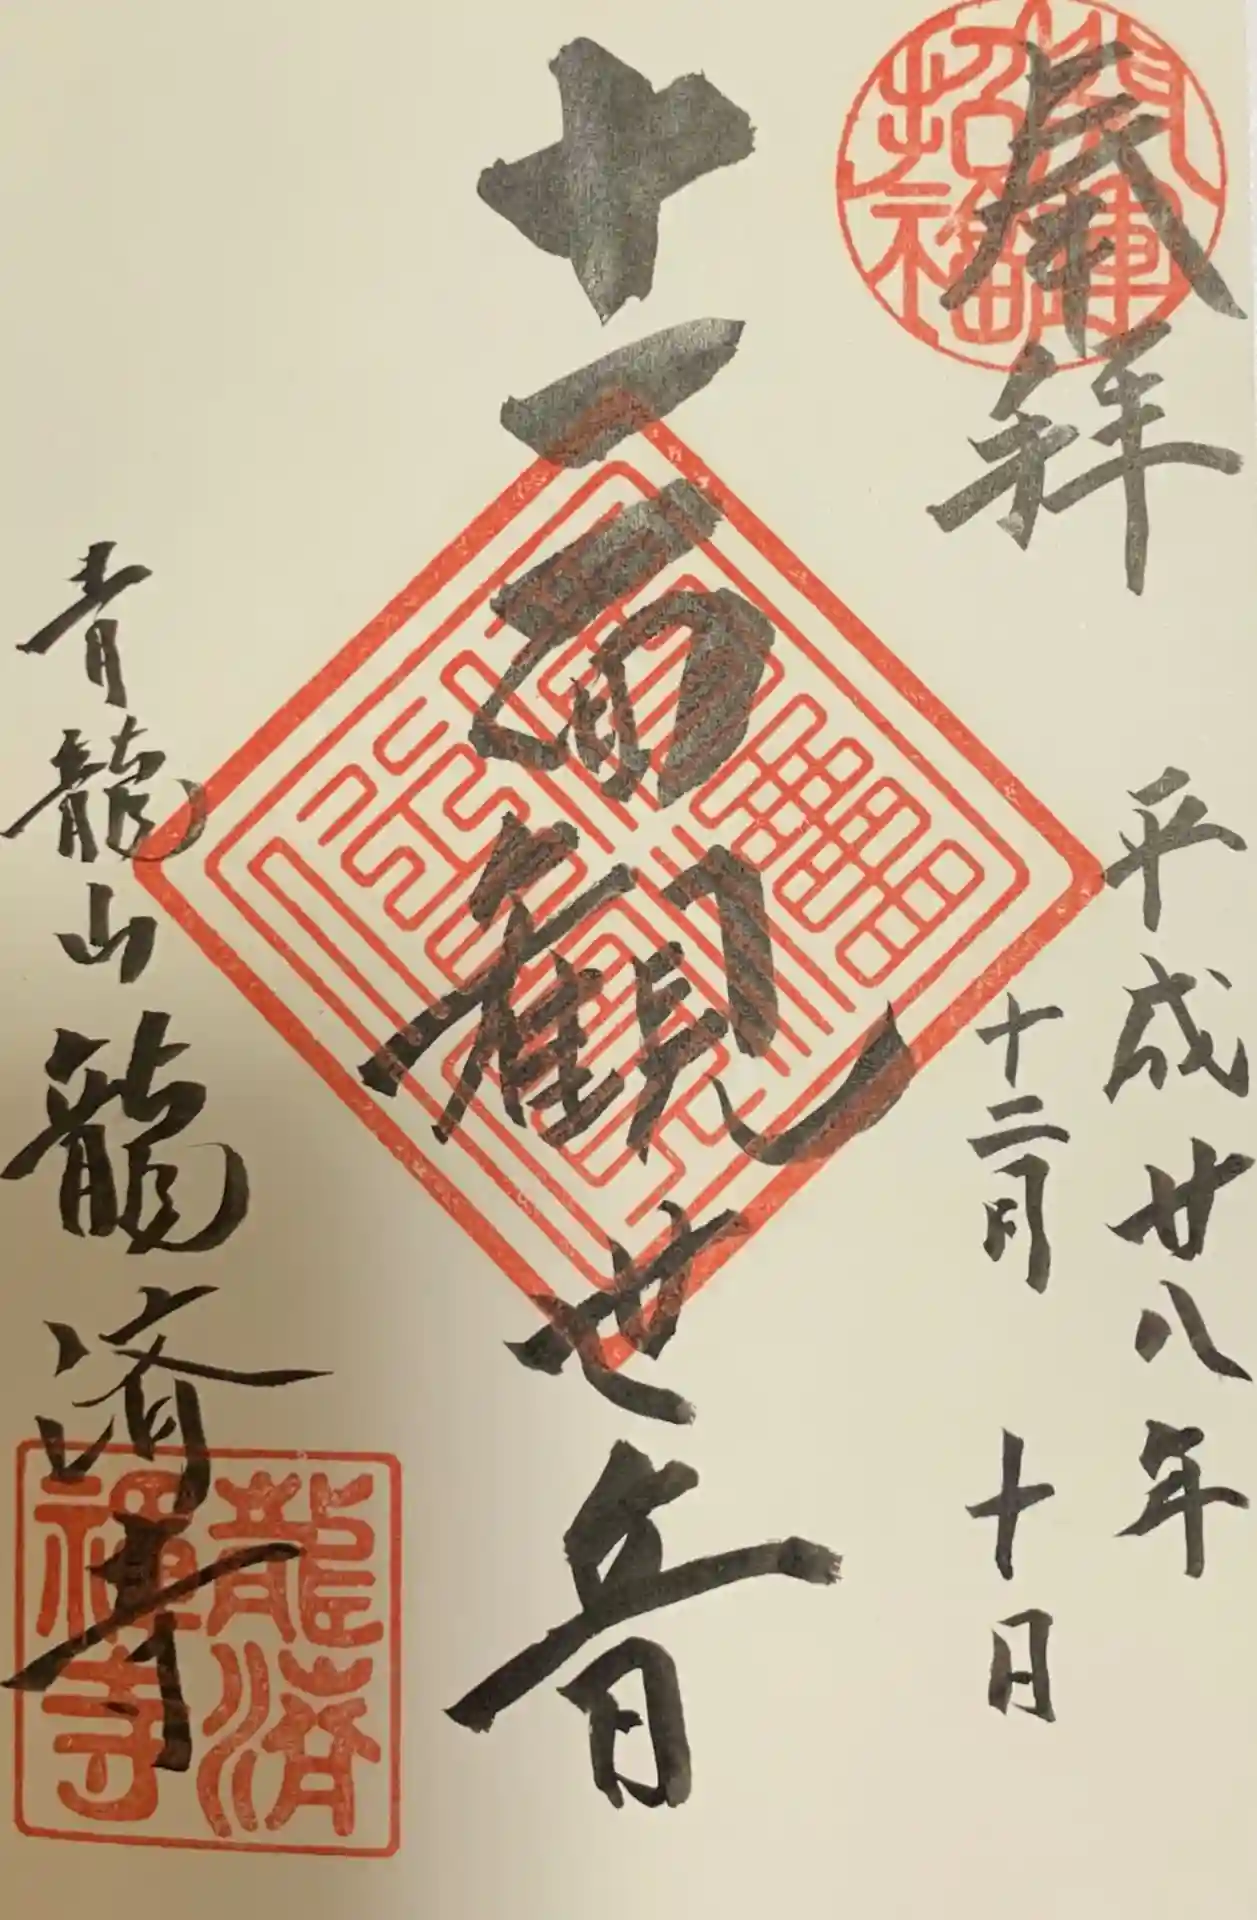 奉拝
開運
招福
平成廿八年
十二月十日
十一面観世音
青龍山龍済寺
龍済
禅寺